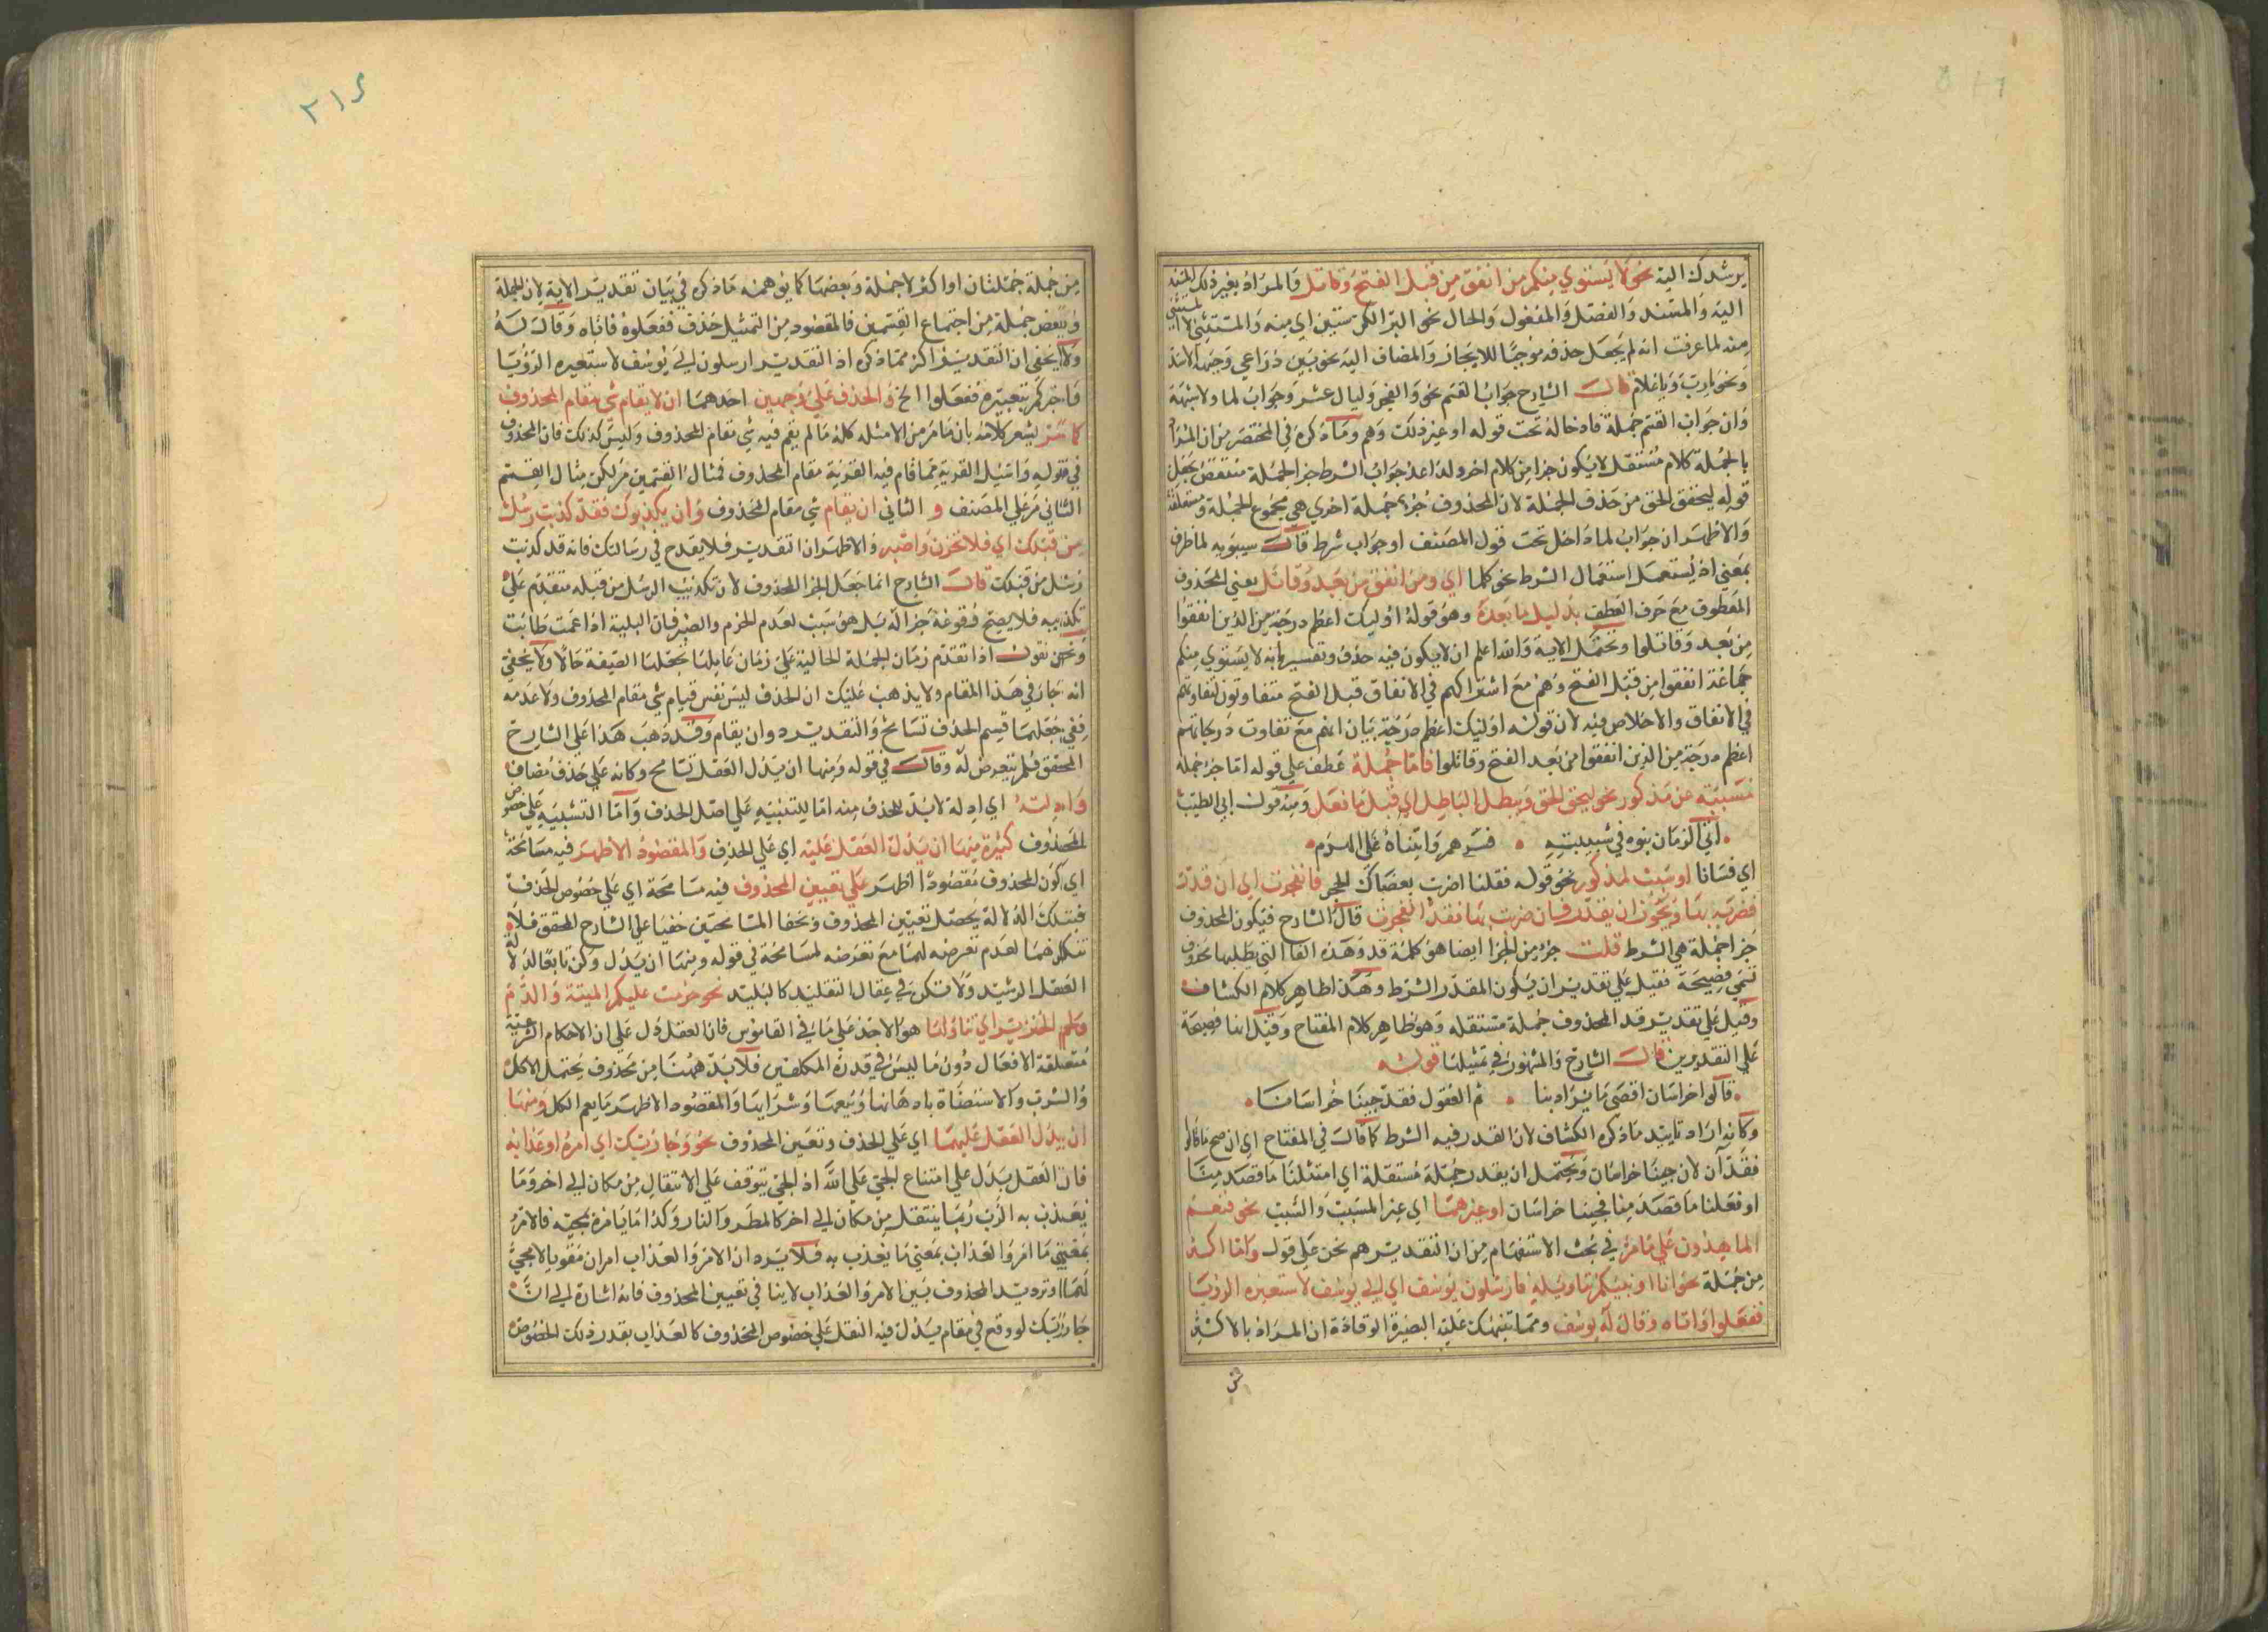 يرشدك اليه نحو لا يستوي منكم من انفق من قبل الفتح وقاتل والمراد بغير ذلك المسند
اليه والمسند والفضل والمفعول والحال نحو البر الكر ستين اي منه والمستثنى لا المستثنى
منه لما عرفت انه لم يجعل حذفه موجبا للايجاز والمضاف اليه نحو بين ذراعي وجبهة الاسد
ونحو يارب ويا غلام قال الشارح جواب القسم نحو والفجر وليال عشر وجواب لما ولا شبهة
وان جواب القسم جملة فادخاله تحت قوله او غير ذلك وهم وما ذكره في المختصر من ان المراد
بالجملة كلام مستقل لا يكون جزا من كلام اخر ولذا عد جواب الشرط جزا لجملة منتقض بجعل
قوله ليحقق الحق من حذف الجملة لان المحذوف جزء جملة اخرى هي مجموع الجملة ومتعلقه
والاظهر ان جواب لما داخل تحت قول المصنف او جواب شرط قال سيبويه لما ظرف
بمعنى اذ يستعمل استعمال الشرط نحو كلما اي ومن انفق من بعد وقاتل يعني المحذوف
المعطوف مع حرف العطف بدليل ما بعده وهو قوله اوليك اعظم درجة من الذين انفقوا
من بعد وقاتلوا ويحتمل الاية والله اعلم ان لا يكون فيه حذف وتفسير بانه لا يستوي منكم
جماعة انفقوا من قبل الفتح وهم مع اشتراكهم في الانفاق قبل الفتح متفاوتون لتفاوتهم
في الانفاق والاخلاص فيه لان قوله اوليك اعظم درجة بيان انهم مع تفاوت درجاتهم
اعظم درجة من الذين انفقوا من بعد الفتح وقاتلوا فاما جملة عطف على قوله اما جزء جملة
مسببة عن مذكور نحو ليحق الحق ويبطل الباطل اي فعل ما فعل ومنه قول ابي الطيب
اتى الزمان بنوه في شبيبته فسرهم واتيناه على الهرم
اي فساءنا او سبب لمذكور نحو قوله فقلنا اضرب بعصاك الحجر فانفجرت اي ان قدر
فضربه بها ويجوز ان يقدر فان ضربت بها فقد انفجرت قال الشارح فيكون المحذوف
جزء جملة هي الشرط قلت جزء من الجزا ايضا هو كلمة قد وهذه الفا التي يطلبها محذوف
تسمى فصيحة فقيل على تقدير ان يكون المقدر الشرط وهكذا ظاهر كلام الكشاف
وقيل على تقدير قد المحذوف جملة مستقله وهو ظاهر كلام المفتاح وقيل انها فصيحة
على التقديرين قال الشارح والمشهور في تمثيلها قوله
قالوا خراسان اقصى ما يراد بنا ثم القفول فقد جينا خراسانا
وكانه اراد تاييد ما ذكره الكشاف لان المقدر فيه الشرط كما قال في المفتاح اي ان صح ما قالوا
فقد آن لان جينا خراسان ويحتمل ان يقدر جملة مستقلة اي امتثلنا ما قصد منا
او فعلنا ما قصد منا فجينا خراسان او غيرهما اي غير المسبب والسبب نحو فنعم
الماهدون على ما مر في بحث الاستفهام من ان التقدير هم نحن على قول واما اكثر
من جملة نحو انا انبيكم بتاويله فارسلون يوسف اي الى يوسف لاستعبره الرؤيا
ففعلوا فاتاه وقال له يوسف ومما ينبهك عليه البصيرة الوقادة ان المراد بالاكثر
من جملة جملتان او اكثر لا جملة وبعضها كما يوهمه ما ذكره في بيان تقدير الاية لان لجملة
وبعض جملة من اجتماع القسمين فالمقصود من التمثيل حذف ففعلوه فاتاه وقال له
ولا يخفى ان التقدير اكثر مما ذكره اذ التقدير ارسلون الى يوسف لاستعبره الرؤيا
فاخبركم بتعبيره ففعلوا الخ والحذف على وجهين احدهما ان لا يقام شي مقام المحذوف
كما مر يشعر كلامه بان ما مر من الامثله كله ما لم يقم فيه شي مقام المحذوف وليس كذلك فان المحذوف
في قوله واسئل القرية مما قام فيه القرية مقام المحذوف فمثال القسمين مر لكن مثال القسم
الثاني مر على المصنف و الثاني ان يقام شي مقام المحذوف وان يكذبوك فقد كذبت رسل
من قبلك اي فلا تحزن واصبر والاظهر ان التقدير فلا يقدح في رسالتك فانه قد كذبت
رسل من قبلك قال الشارح انما جعل الجزا المحذوف لان تكذيب الرسل من قبله متقدم على
تكذيبه فلا يصح وقوعه جزا له بل هو سبب لعدم الحزم والصبر فان البلية اذا عمت طابت
ونحن نقول اذا تقدم زمان الجملة الحالية على زمان عاملها بجعلها الصيغة حالا ولا يخفى
انه جار في هذا المقام ولا يذهب عليك ان الحذف ليس نفس قيام شي مقام المحذوف ولا عدمه
ففي جعلهما قسم الحذف تسامح والتقدير دوان يقام وقد ذهب هذا على الشارح
المحقق فلم يتعرض له وقال في قوله ومنها ان يدل العقل تسامح وكانه على حذف مضاف
وادلته اي ادلة لابد للحذف منه اما للتنبيه على اصل الحذف واما التنبيه على خصوص
المحذوف كثيرة منها ان يدل العقل عليه اي على الحذف والمقصود الاظهر فيه مسامحة
اي كون المحذوف مقصودا اظهر على تعيين المحذوف فيه مسامحة اي على خصوص الحذف
فبتلك الدلالة يحصل تعيين المحذوف ونحفا المسامحتين خفيا على الشارح المحقق فلا
تنكرهما لعدم تعرضه لهما مع تعرضه لمسامحة في قوله ومنها ان يدل وكن تابعا لدلالة
العقل الرشيد ولا تكن في عقال التقليد كالبليد نحو حرمت عليكم الميتة والدم
ولحم الخنزير اي تناولها هو الاخذ على ما في القاموس فان العقل دل على ان الاحكام الشرعية
متعلقة الافعال دون ما ليس في قدرة المكلفين فلابد ههنا من محذوف يحتمل الاكل
والشرب والاستضاة بادهانها وبيعها وشرايها والمقصود الاظهر ما يعم الكل ومنها
ان يدل العقل عليهما اي على الحذف وتعيين المحذوف نحو وجا ربك اي امره او عذابه
فان العقل يدل على امتناع المجي على الله اذ المجي يتوقف على الانتقال من مكان الى اخر وما
يعذب به الرب ربما ينتقل من مكان الى اخر كالمطر والنار وكذا ما يامره بمجيه فالامر
بمعنى ما امر والعذاب بمعنى ما يعذب به فلا يرد ان الامر والعذاب امران معنويا لا مجي
لهما وترديد المحذوف بين الامر والعذاب لاينافي تعيين المحذوف فانه اشارة الى ان
جا ربك لو وقع في مقام يدل فيه النقل على خصوص المحذوف كالعذاب يقدر ذلك الخصوص